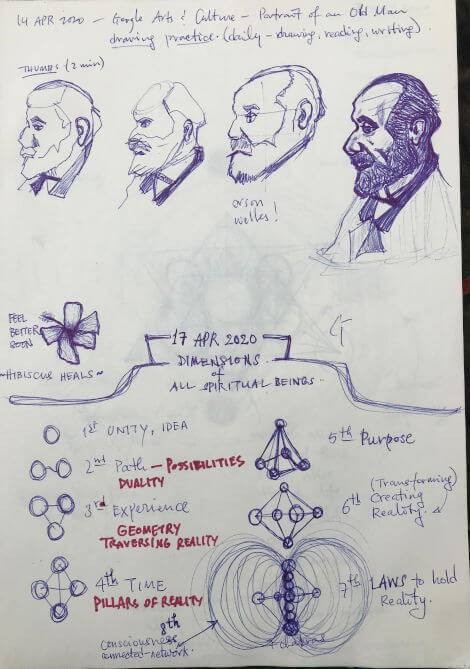 14 APR 2020 – Google Arts & Culture – Portrait of an Old Man
drawing practice (daily – drawing, reading, writing).
THUMBS (2 min)
orson
welles!
FEEL
BETTER
SOON
~HIBISCUS HEALS~
17 APR 2020
DIMENSIONS
of
ALL SPIRITUAL BEINGS.
1st UNITY, IDEA
2nd Path – POSSIBILITIES
DUALITY
3rd Experience
GEOMETRY
TRAVERSING REALITY
4th TIME
PILLARS OF REALITY
5th Purpose
(Transforming)
6th Creating
Reality.
7th LAWS to hold
Reality.
8th
Consciousness
connected-network.
7 chakras